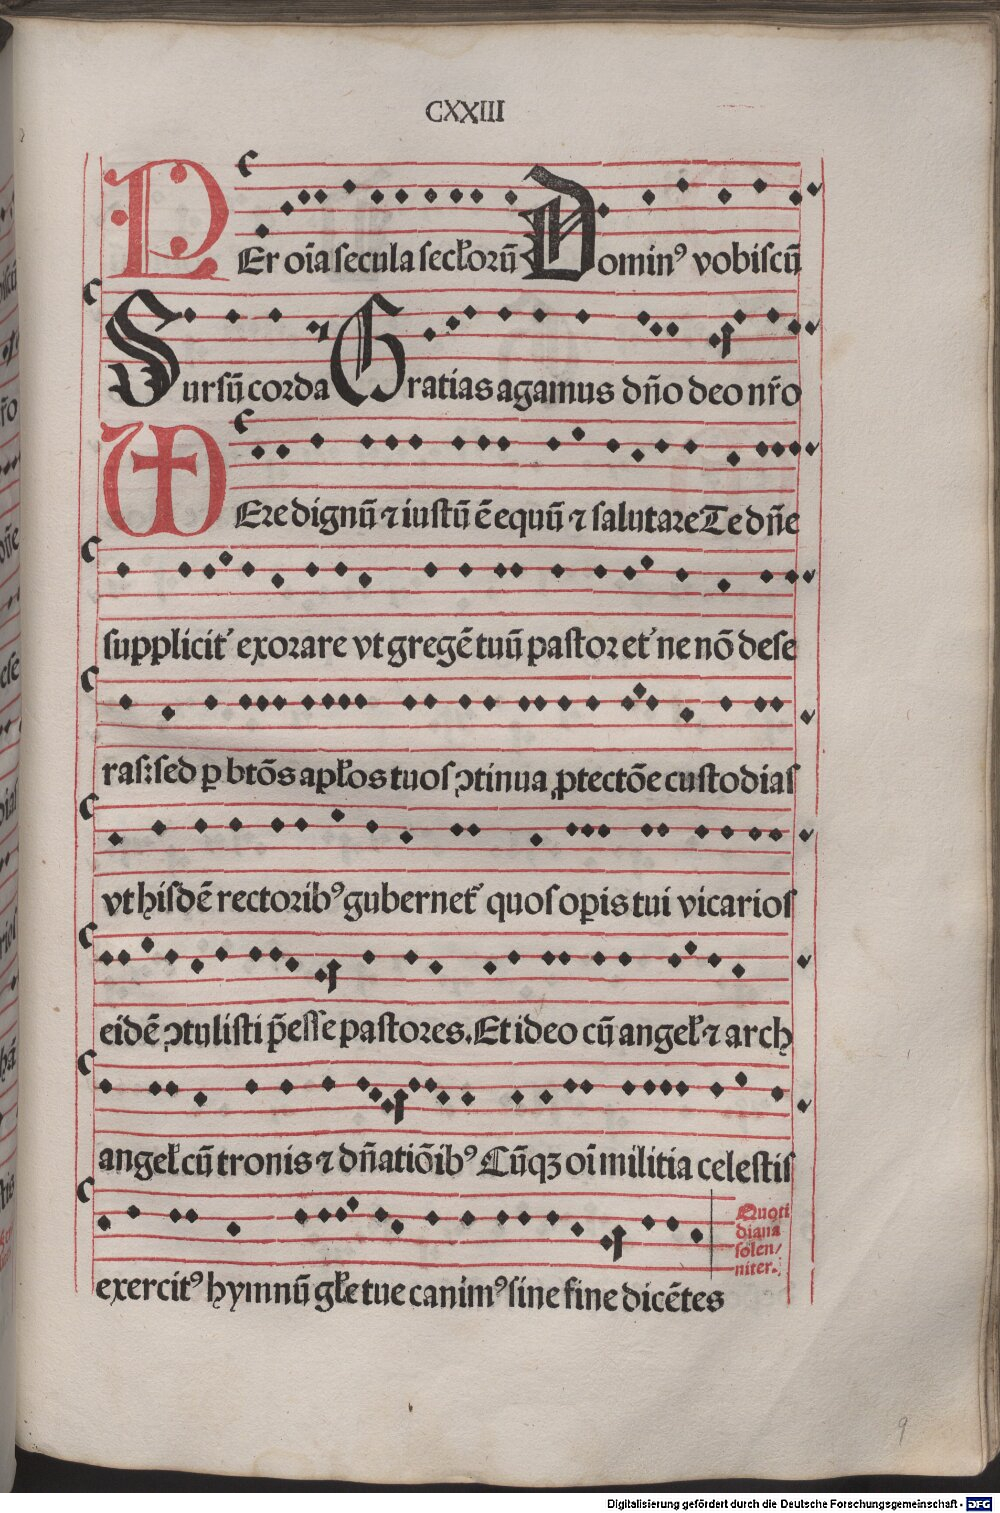 CXXIII
PEr oīa secula secłorū Dominꝰ vobiscū
Sursū corda Gratias agamus dn̄o deo nr̄o
VEre dignū ⁊ iustū ē equū ⁊ salutare Te dn̄e
supplicit᷑ exorare vt gregē tuū pastor et᷑ne nō dese
ras: sed ꝑ btōs apłos tuos ↄtinua ꝓtectōe custodias
vt hisdē rectoribꝰ gubernet᷑ quos oꝑis tui vicarios
eidē ↄtulisti p̄esse pastores. Et ideo cū angeł ⁊ arch
angeł cū tronis ⁊ dn̄atiōibꝰ Cūqꝫ oī militia celestis
exercitꝰ hymnū głe tue canimꝰ sine fine dicētes
Quoti
diana
solen/
niter.
9
Digitalisierung gefördert durch die Deutsche Forschungsgemeinschaft - DFG